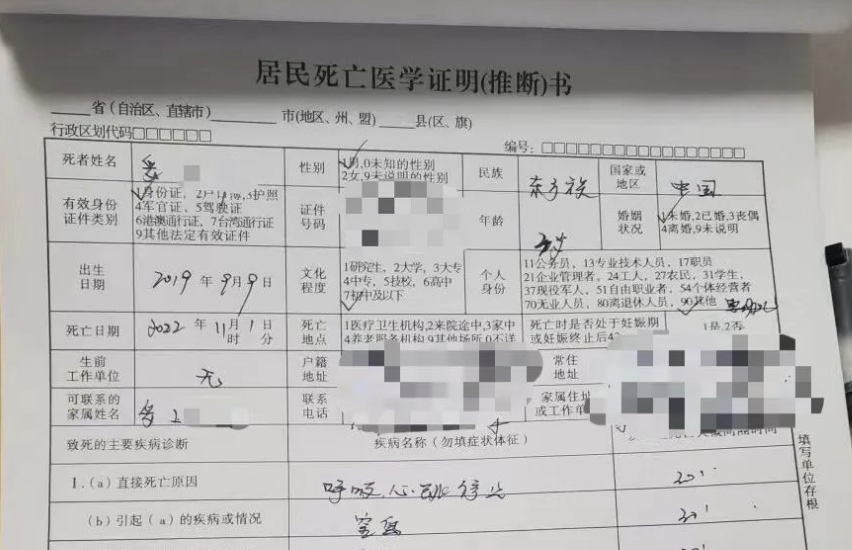 居民死亡医学证明(推断)书
省(自治区、直辖市) 市(地区、州、盟) 县(区、旗)
行政区划代码□□□□□□
编号:□□□□□□□□□□□□□□□□□
死者姓名
性别
男,0未知的性别
2女,9未说明的性别
民族
东乡族
国家或
地区
中国
有效身份
证件类别
身份证,
护照
4军官证、5驾驶证
6港澳通行证、7台湾通行证
9其他法定有效证件
证件
号码
年龄
3岁
婚姻
状况
未婚,2已婚,3丧偶
4离婚,9未说明
出生
日期
2019 年 9月9日
文化
程度
1研究生,2大学,3大专
4中专,5技校,6高中
7初中及以下
个人
身份
11公务员,13专业技术人员,17职员
21企业管理者,24工人,27农民,31学生,
37现役军人,51自由职业者,54个体经营者
70无业人员,80离退休人员,90其他
死亡日期
2022 年 11月1日
时 分
死亡
地点
1医疗卫生机构,2来院途中,3家中
4养老服务机构,9其他场所,0不详
死亡时是否处于妊娠期
或妊娠终止后42
1是,2否
生前
工作单位
无
户籍
地址
常住
地址
可联系的
家属姓名
联系
电话
家属住址
或工作单
致死的主要疾病诊断
疾病名称(勿填症状体征)
1.(a)直接死亡原因
呼吸心跳停止
(b)引起(a)的疾病或情况
窒息
填写单位存根